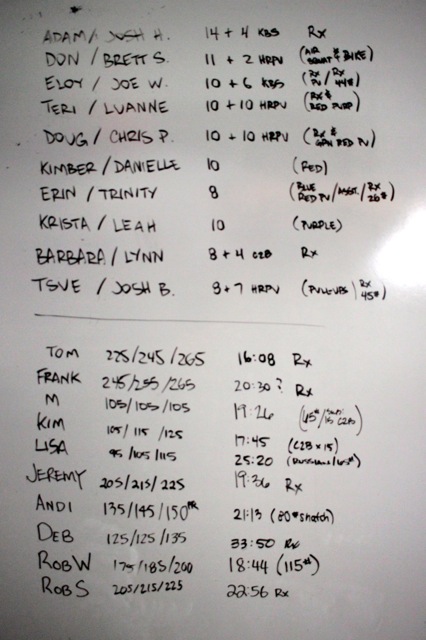 ADAM / JOSH H. 14 + 4 KBS Rx
DON / BRETT S. 11 + 2 HRPV (AIR SQUAT & BIKE)
ELOY / JOE W. 10 + 6 KBS (Rx PV / Rx 44#)
TERI / LUANNE 10 + 10 HRPV (Rx & RED PURP)
DOUG / CHRIS P. 10 + 10 HRPV (Rx & GRN RED PV)
KIMBER / DANIELLE 10 (RED)
ERIN / TRINITY 8 (BLUE RED PV / ASST. / Rx 26#)
KRISTA / LEAH 10 (PURPLE)
BARBARA / LYNN 8 + 4 C2B Rx
TSVE / JOSH B. 8 + 7 HRPV (PULL-UPS / Rx 45#)
TOM 225/245/265 16:08 Rx
FRANK 245/255/265 20:30? Rx
M 105/105/105 19:26 (65# / 15 C2B)
KIM 105/115/125 17:45 (C2B x 15)
LISA 95/105/115 25:20 (RUSSIANS/65#)
JEREMY 205/215/225 19:36 Rx
ANDI 135/145/150 PR 21:13 (80# snatch)
DEB 125/125/135 33:50 Rx
ROB W 175/185/200 18:44 (115#)
ROB S 205/215/225 22:56 Rx